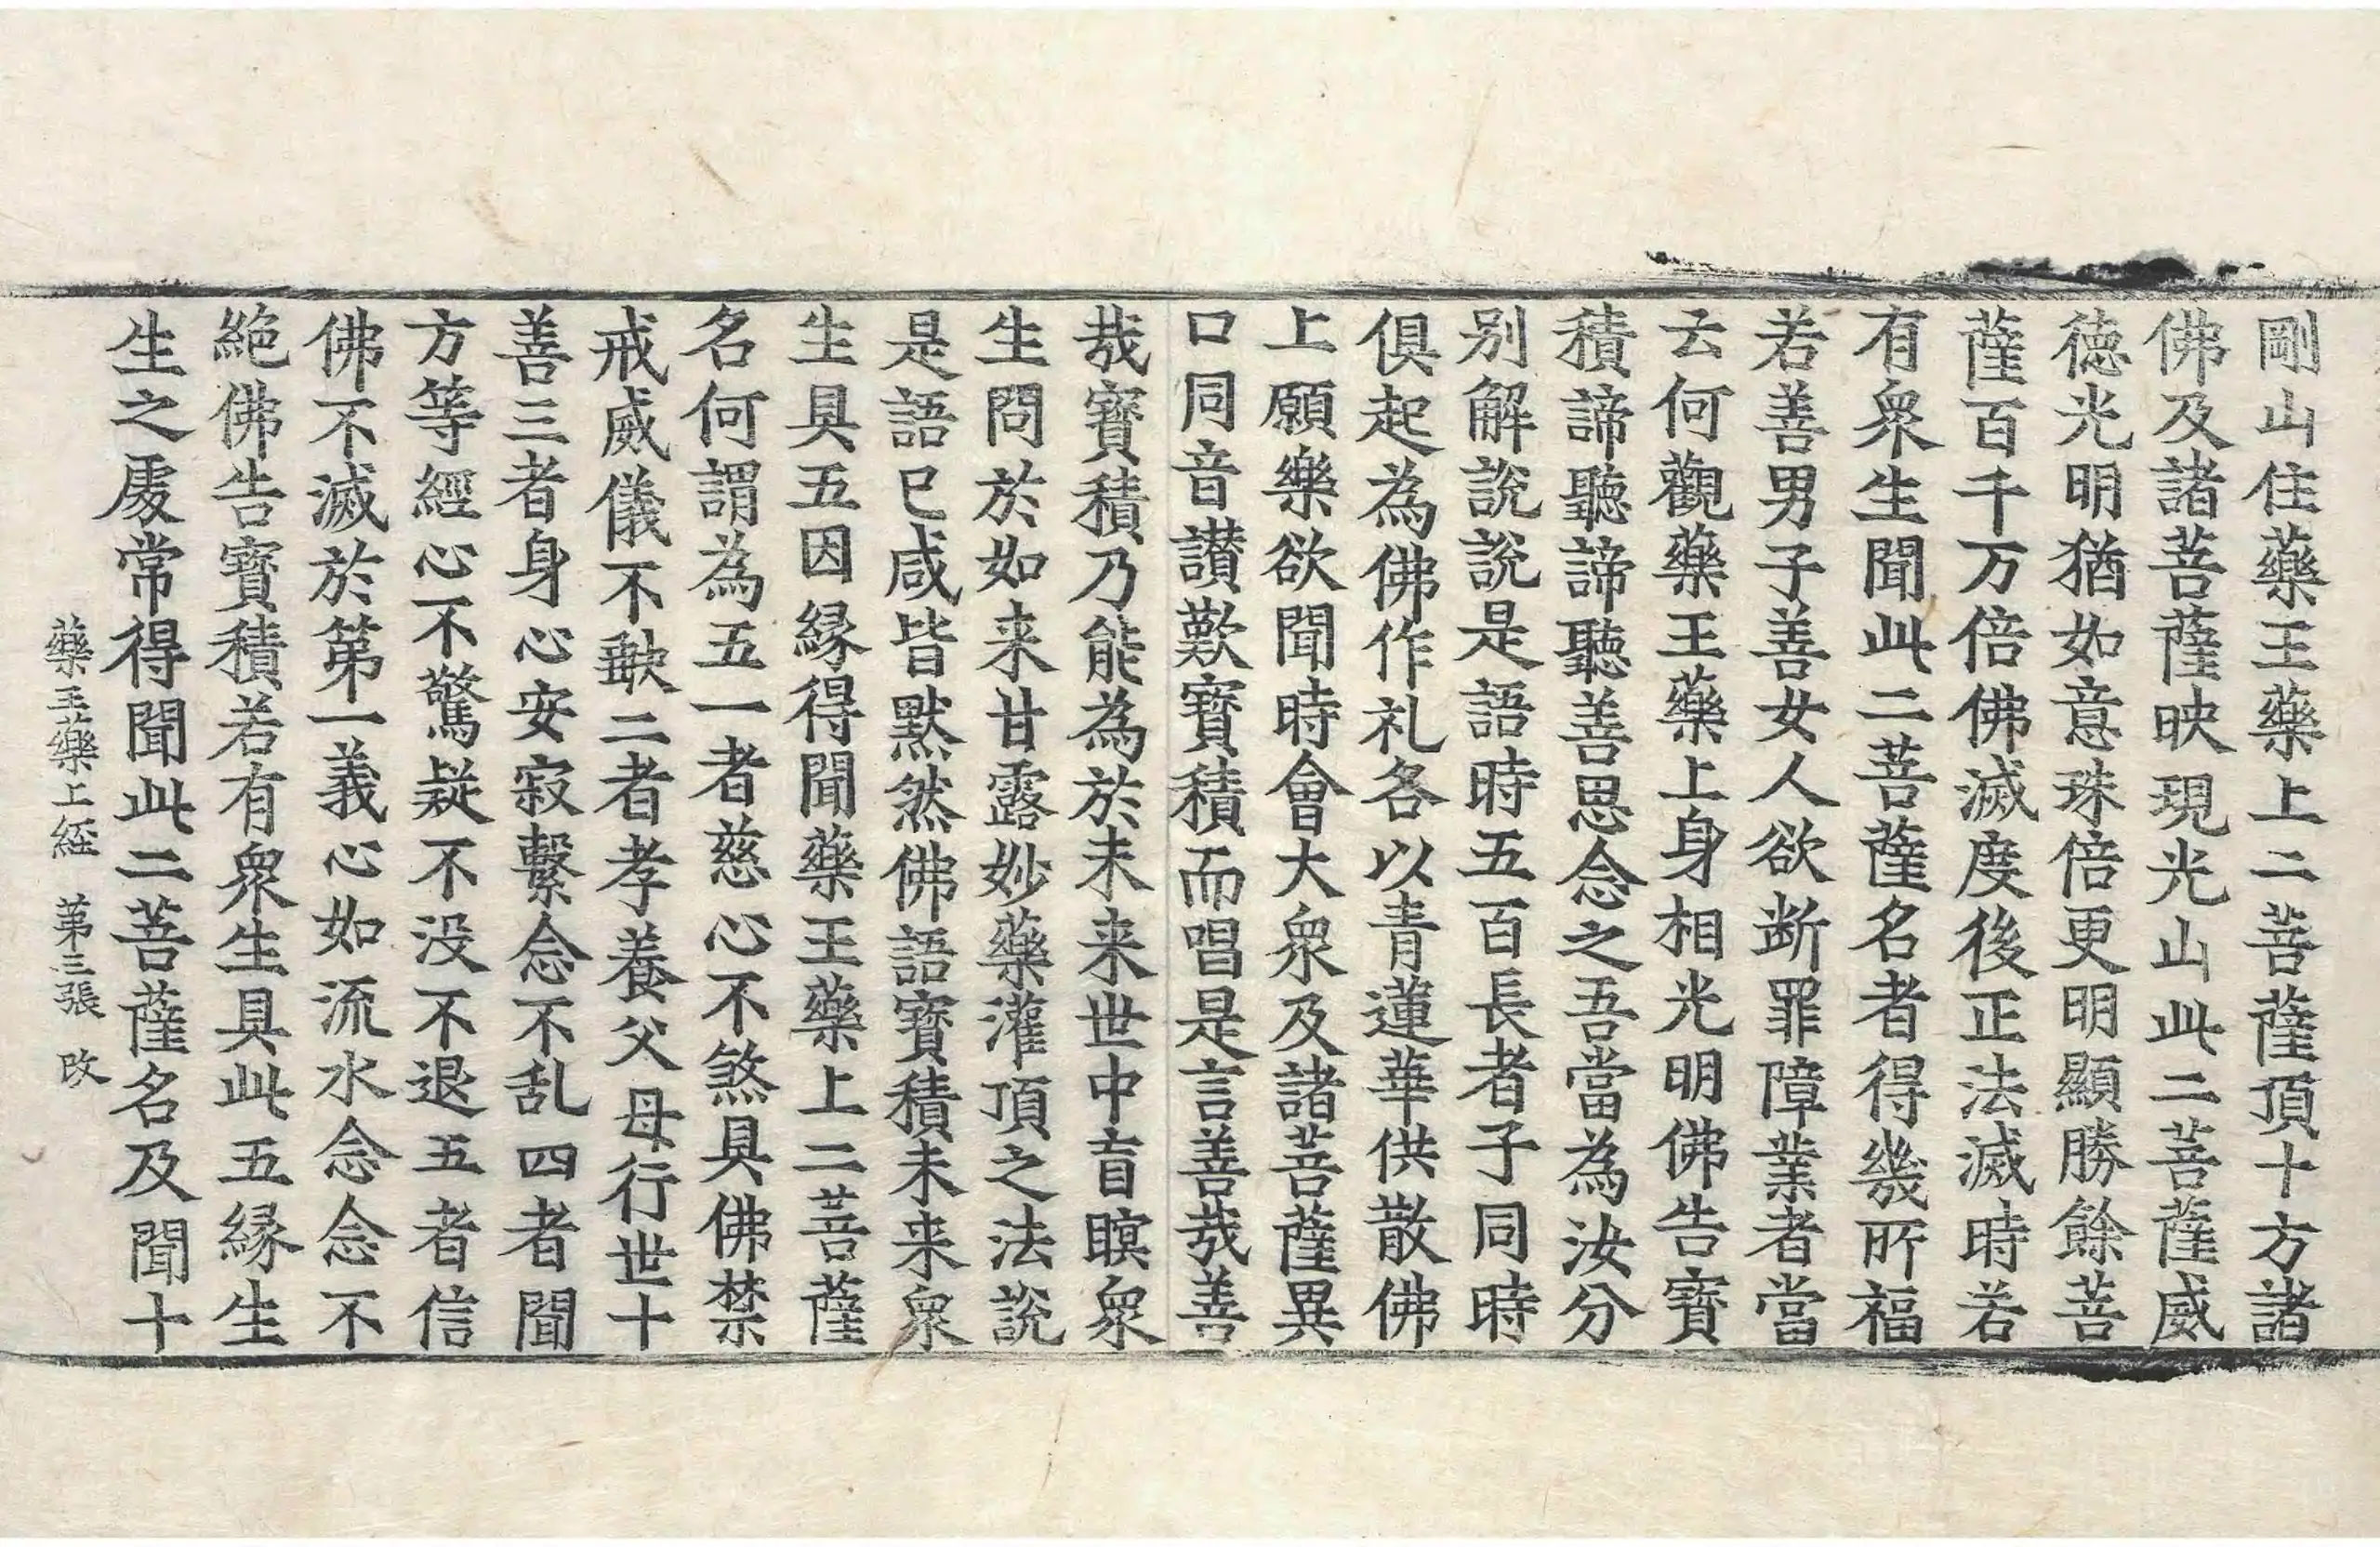 剛山住藥王藥上二菩薩頂十方諸
佛及諸菩薩映現光山此二菩薩威
徳光明猶如意珠倍更明顯勝餘菩
薩百千万倍佛滅度後正法滅時若
有衆生聞此二菩薩名者得幾所福
若善男子善女人欲断罪障業者當
云何觀藥王藥上身相光明佛告寶
積諦聽諦聽善思念之吾當為汝分
别解說說是語時五百長者子同時
俱起為佛作礼各以青蓮華供散佛
上願樂欲聞時會大衆及諸菩薩異
口同音讃歎寶積而唱是言善哉善
哉寶積乃能為於未来世中盲瞑衆
生問於如来甘露妙藥灌頂之法說
是語已咸皆默然佛語寶積未来衆
生具五因縁得聞藥王藥上二菩薩
名何謂為五一者慈心不煞具佛禁
戒威儀不缺二者孝養父母行世十
善三者身心安寂繫念不乱四者聞
方等經心不驚疑不没不退五者信
佛不滅於第一義心如流水念念不
絶佛告寶積若有衆生具此五縁生
生之處常得聞此二菩薩名及聞十
藥王藥上經　第三張　改